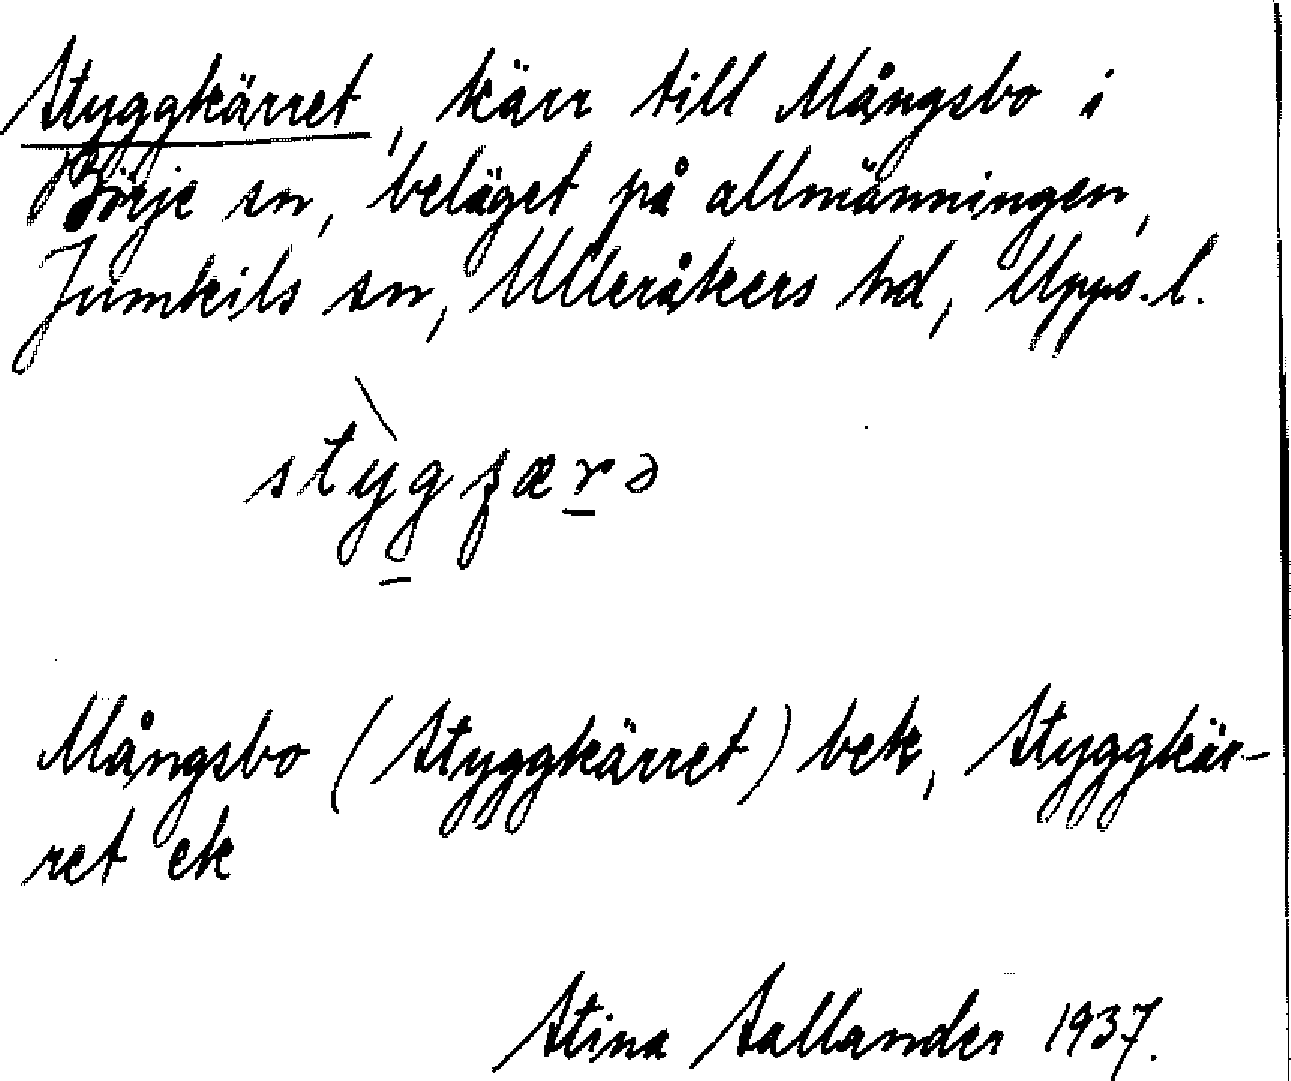 Styggkärret, kärr till Mångsbo i
Börje sn, beläget på allmänningen,
Jumkils sn, Ulleråkers hd, Upps. l.
Mångsbo (Styggkärret) bek, Styggkär-
ret ek
Stina Sallander 1937.